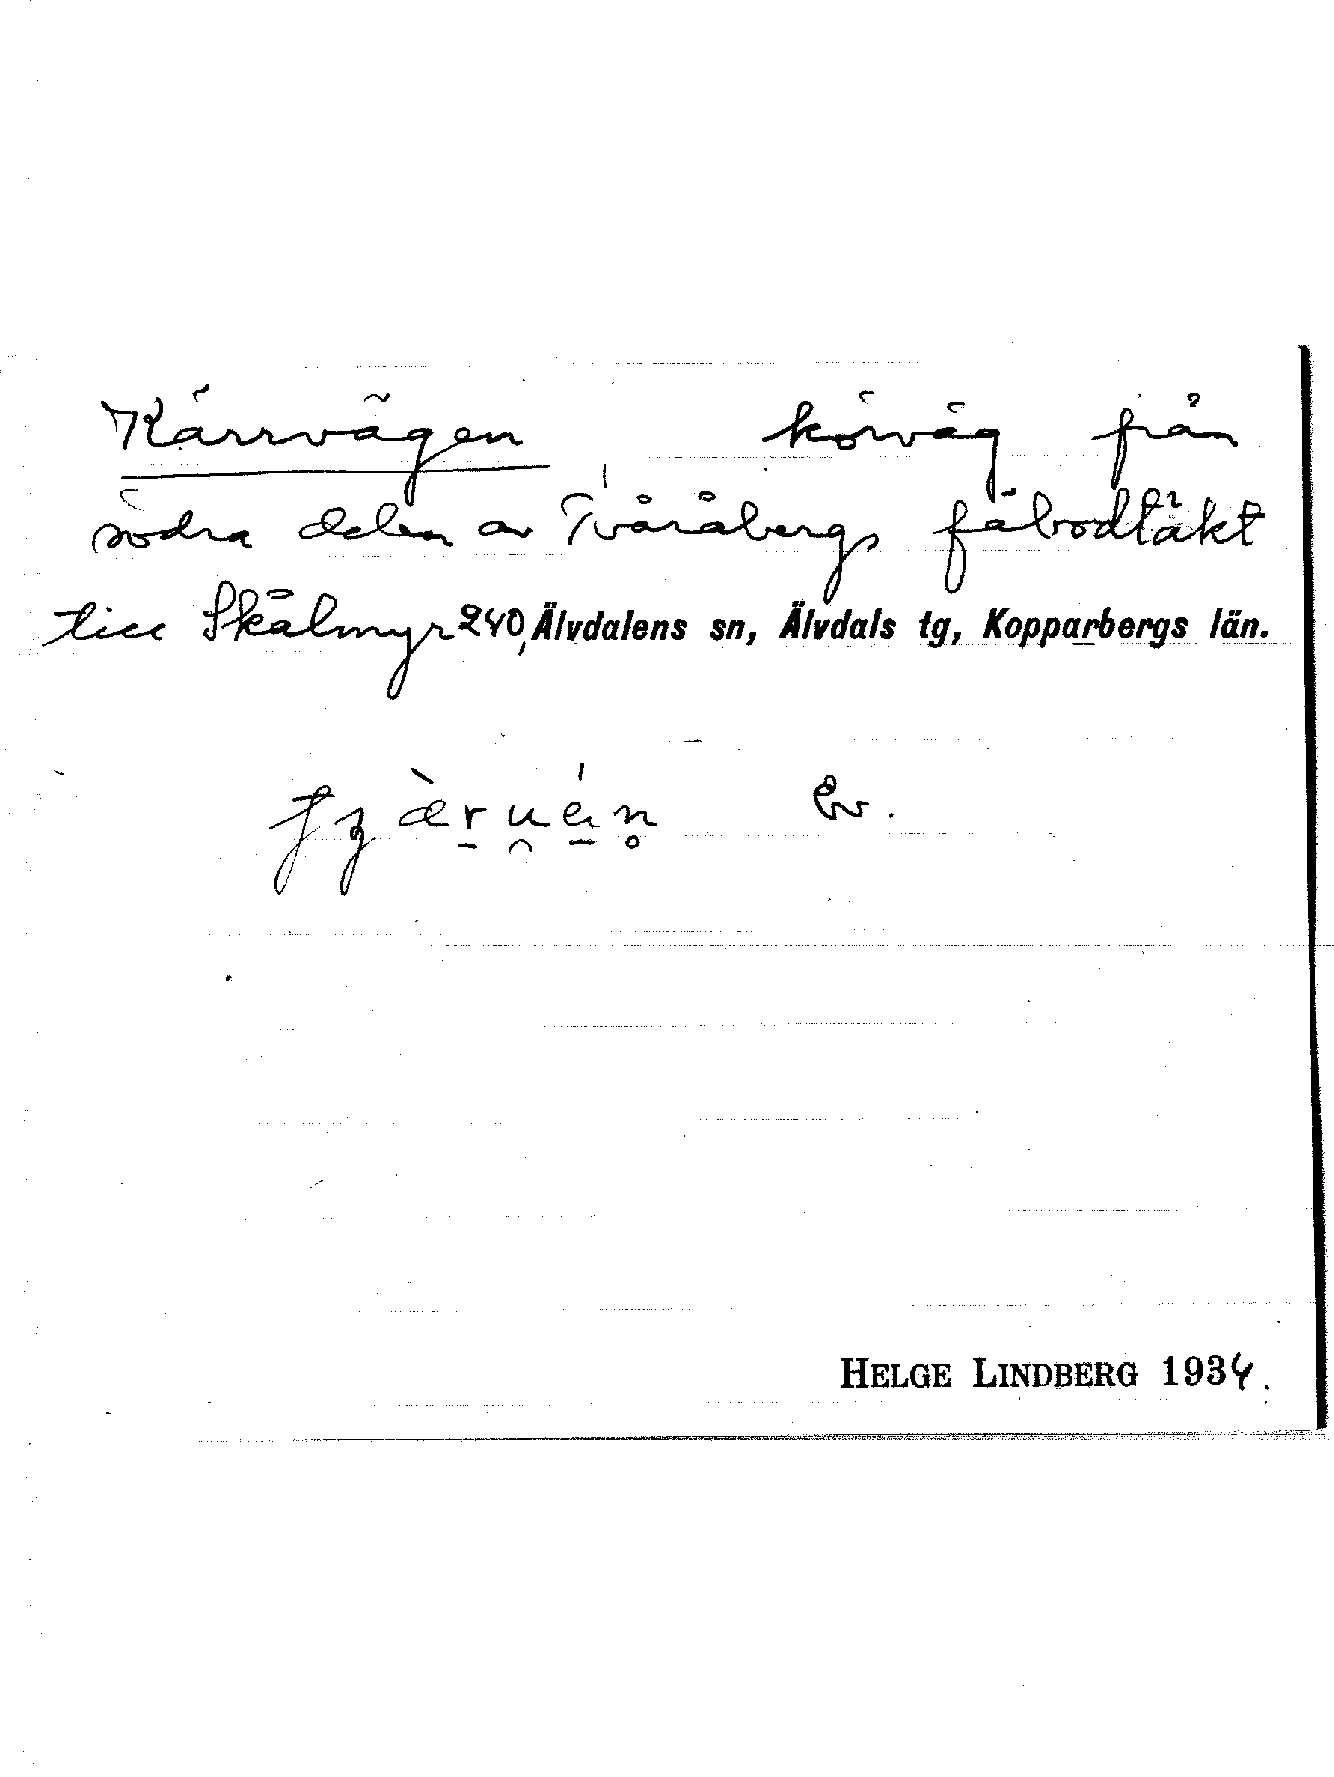 Kärrvägen körväg från
södra delen av Tvåråbergs fäbodtäkt
till Skålmyr 240, Älvdalens sn, Älvdals tg, Kopparbergs län.
HELGE LINDBERG 1934.